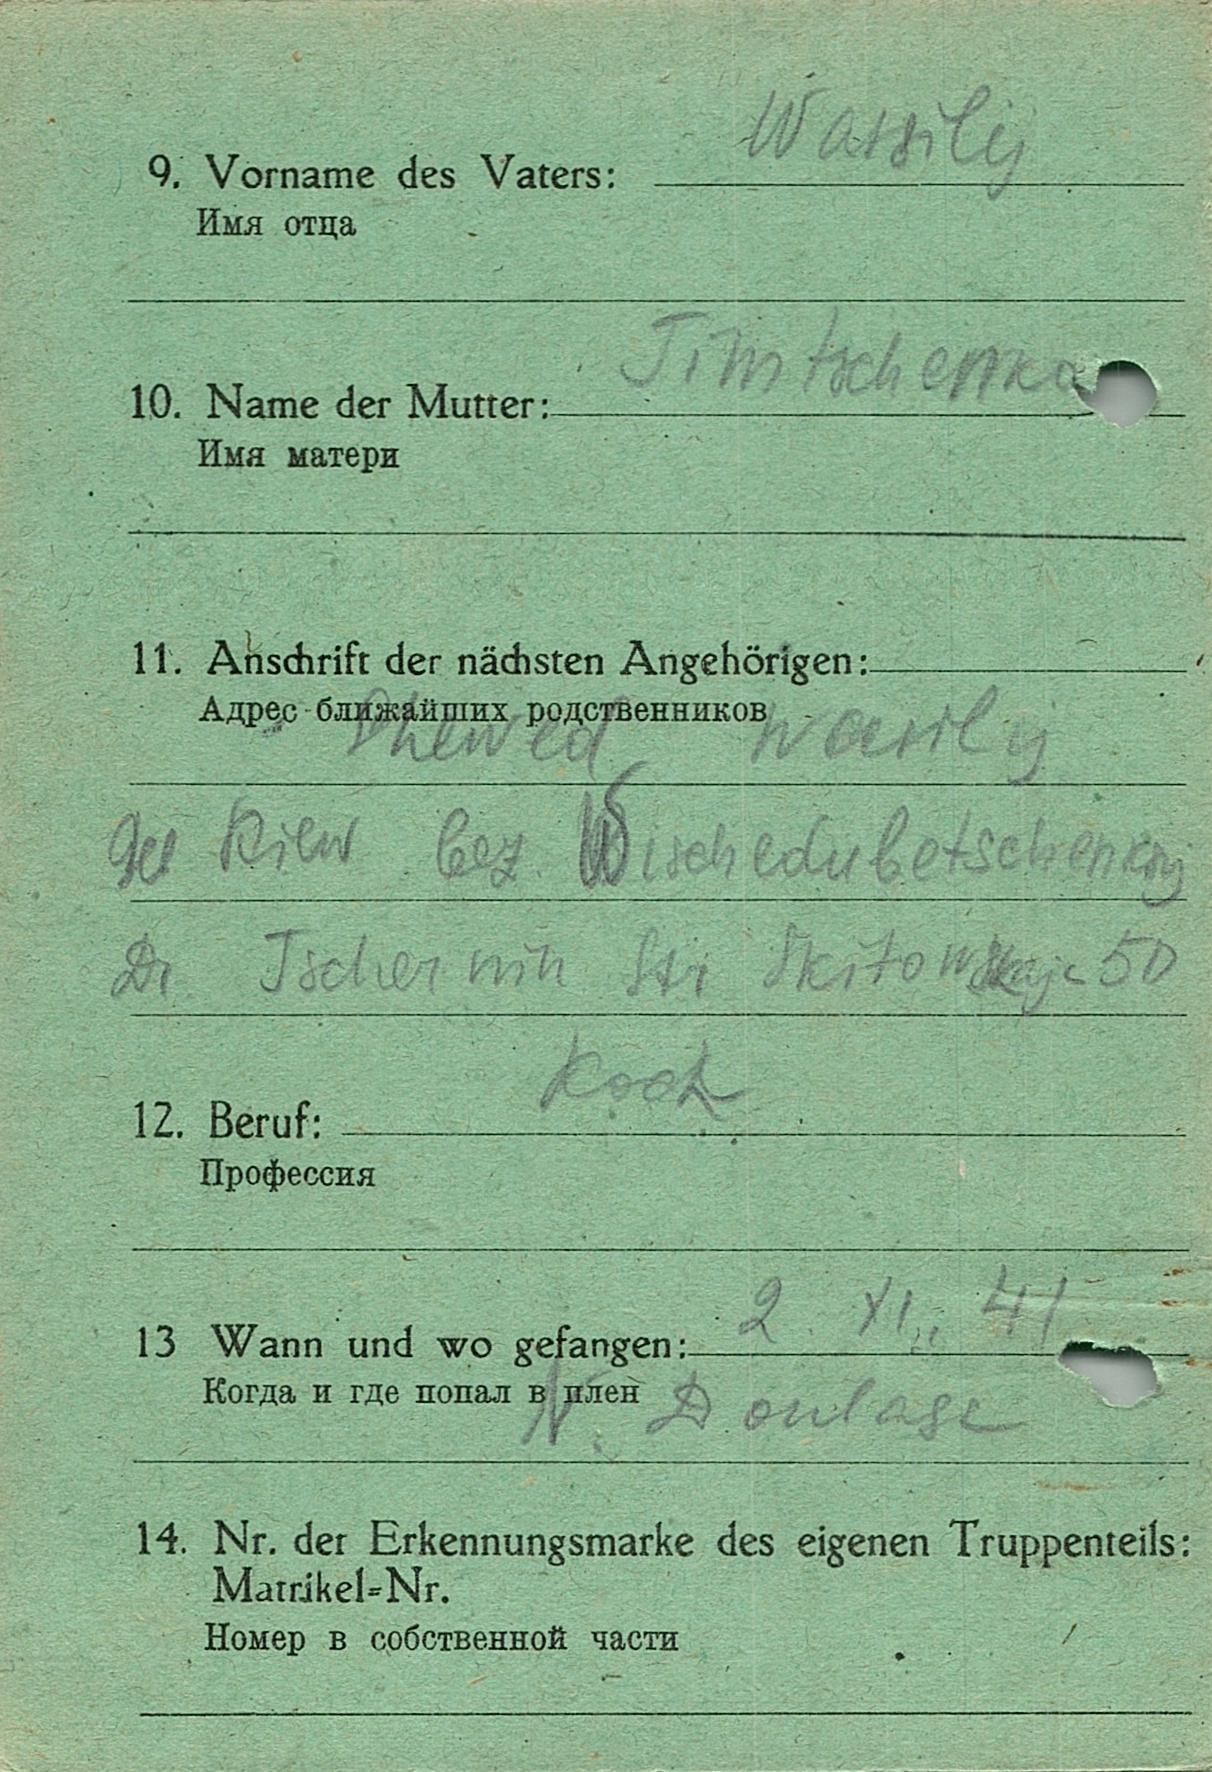 Wassilij
9. Vorname des Vaters:
Имя отца
Timtschenko
10. Name der Mutter:
Имя матери
11. Anschrift der nächsten Angehörigen:
Адрес ближайших родственников
Wasilij
Kiew bez. Wischedubetschenskij
Tschernin Str 50
Koch
12. Beruf:
Профессия
2. XI. 41
13 Wann und wo gefangen:
Когда и где попал в плен
N.
14. Nr. der Erkennungsmarke des eigenen Truppenteils:
Matrikel=Nr.
Номер в собственной части